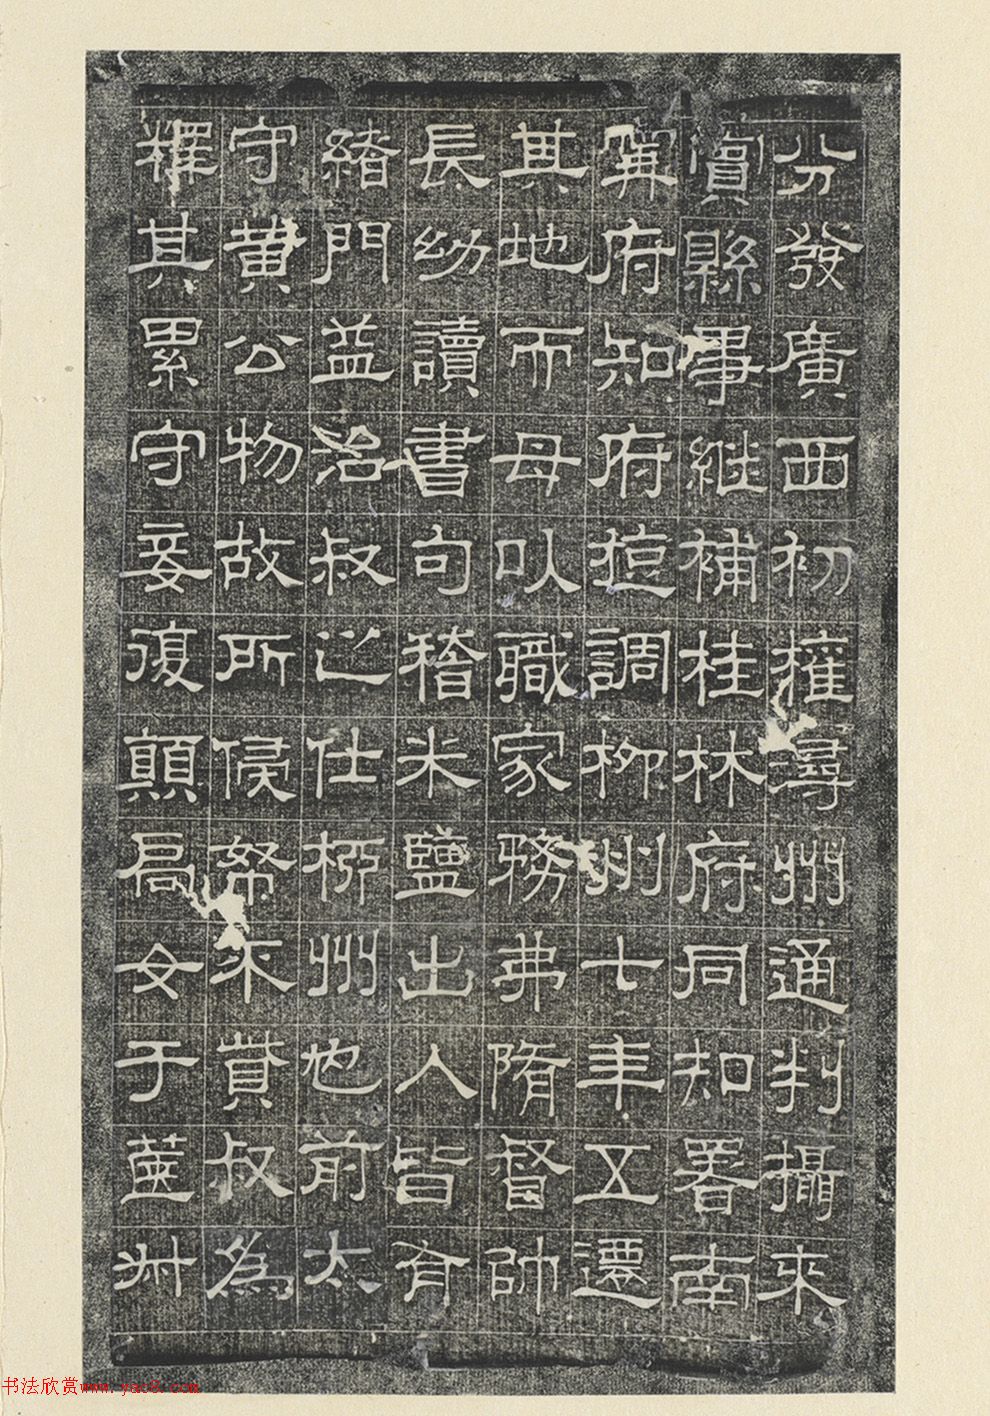 分發廣西初擢潯州通判攝來
賓縣事繼補桂林府同知署南
甯府知府㨗調柳州七年五遷
其地而母以職家務弗隋督帥
長幼讀書句稽米鹽出入皆有
緒門益治叔之仕柳州也前太
守黃公物故所㑨帑不貲叔為
釋其累守妾復顛扃女于蓝州
书法欣赏www.yac8.com